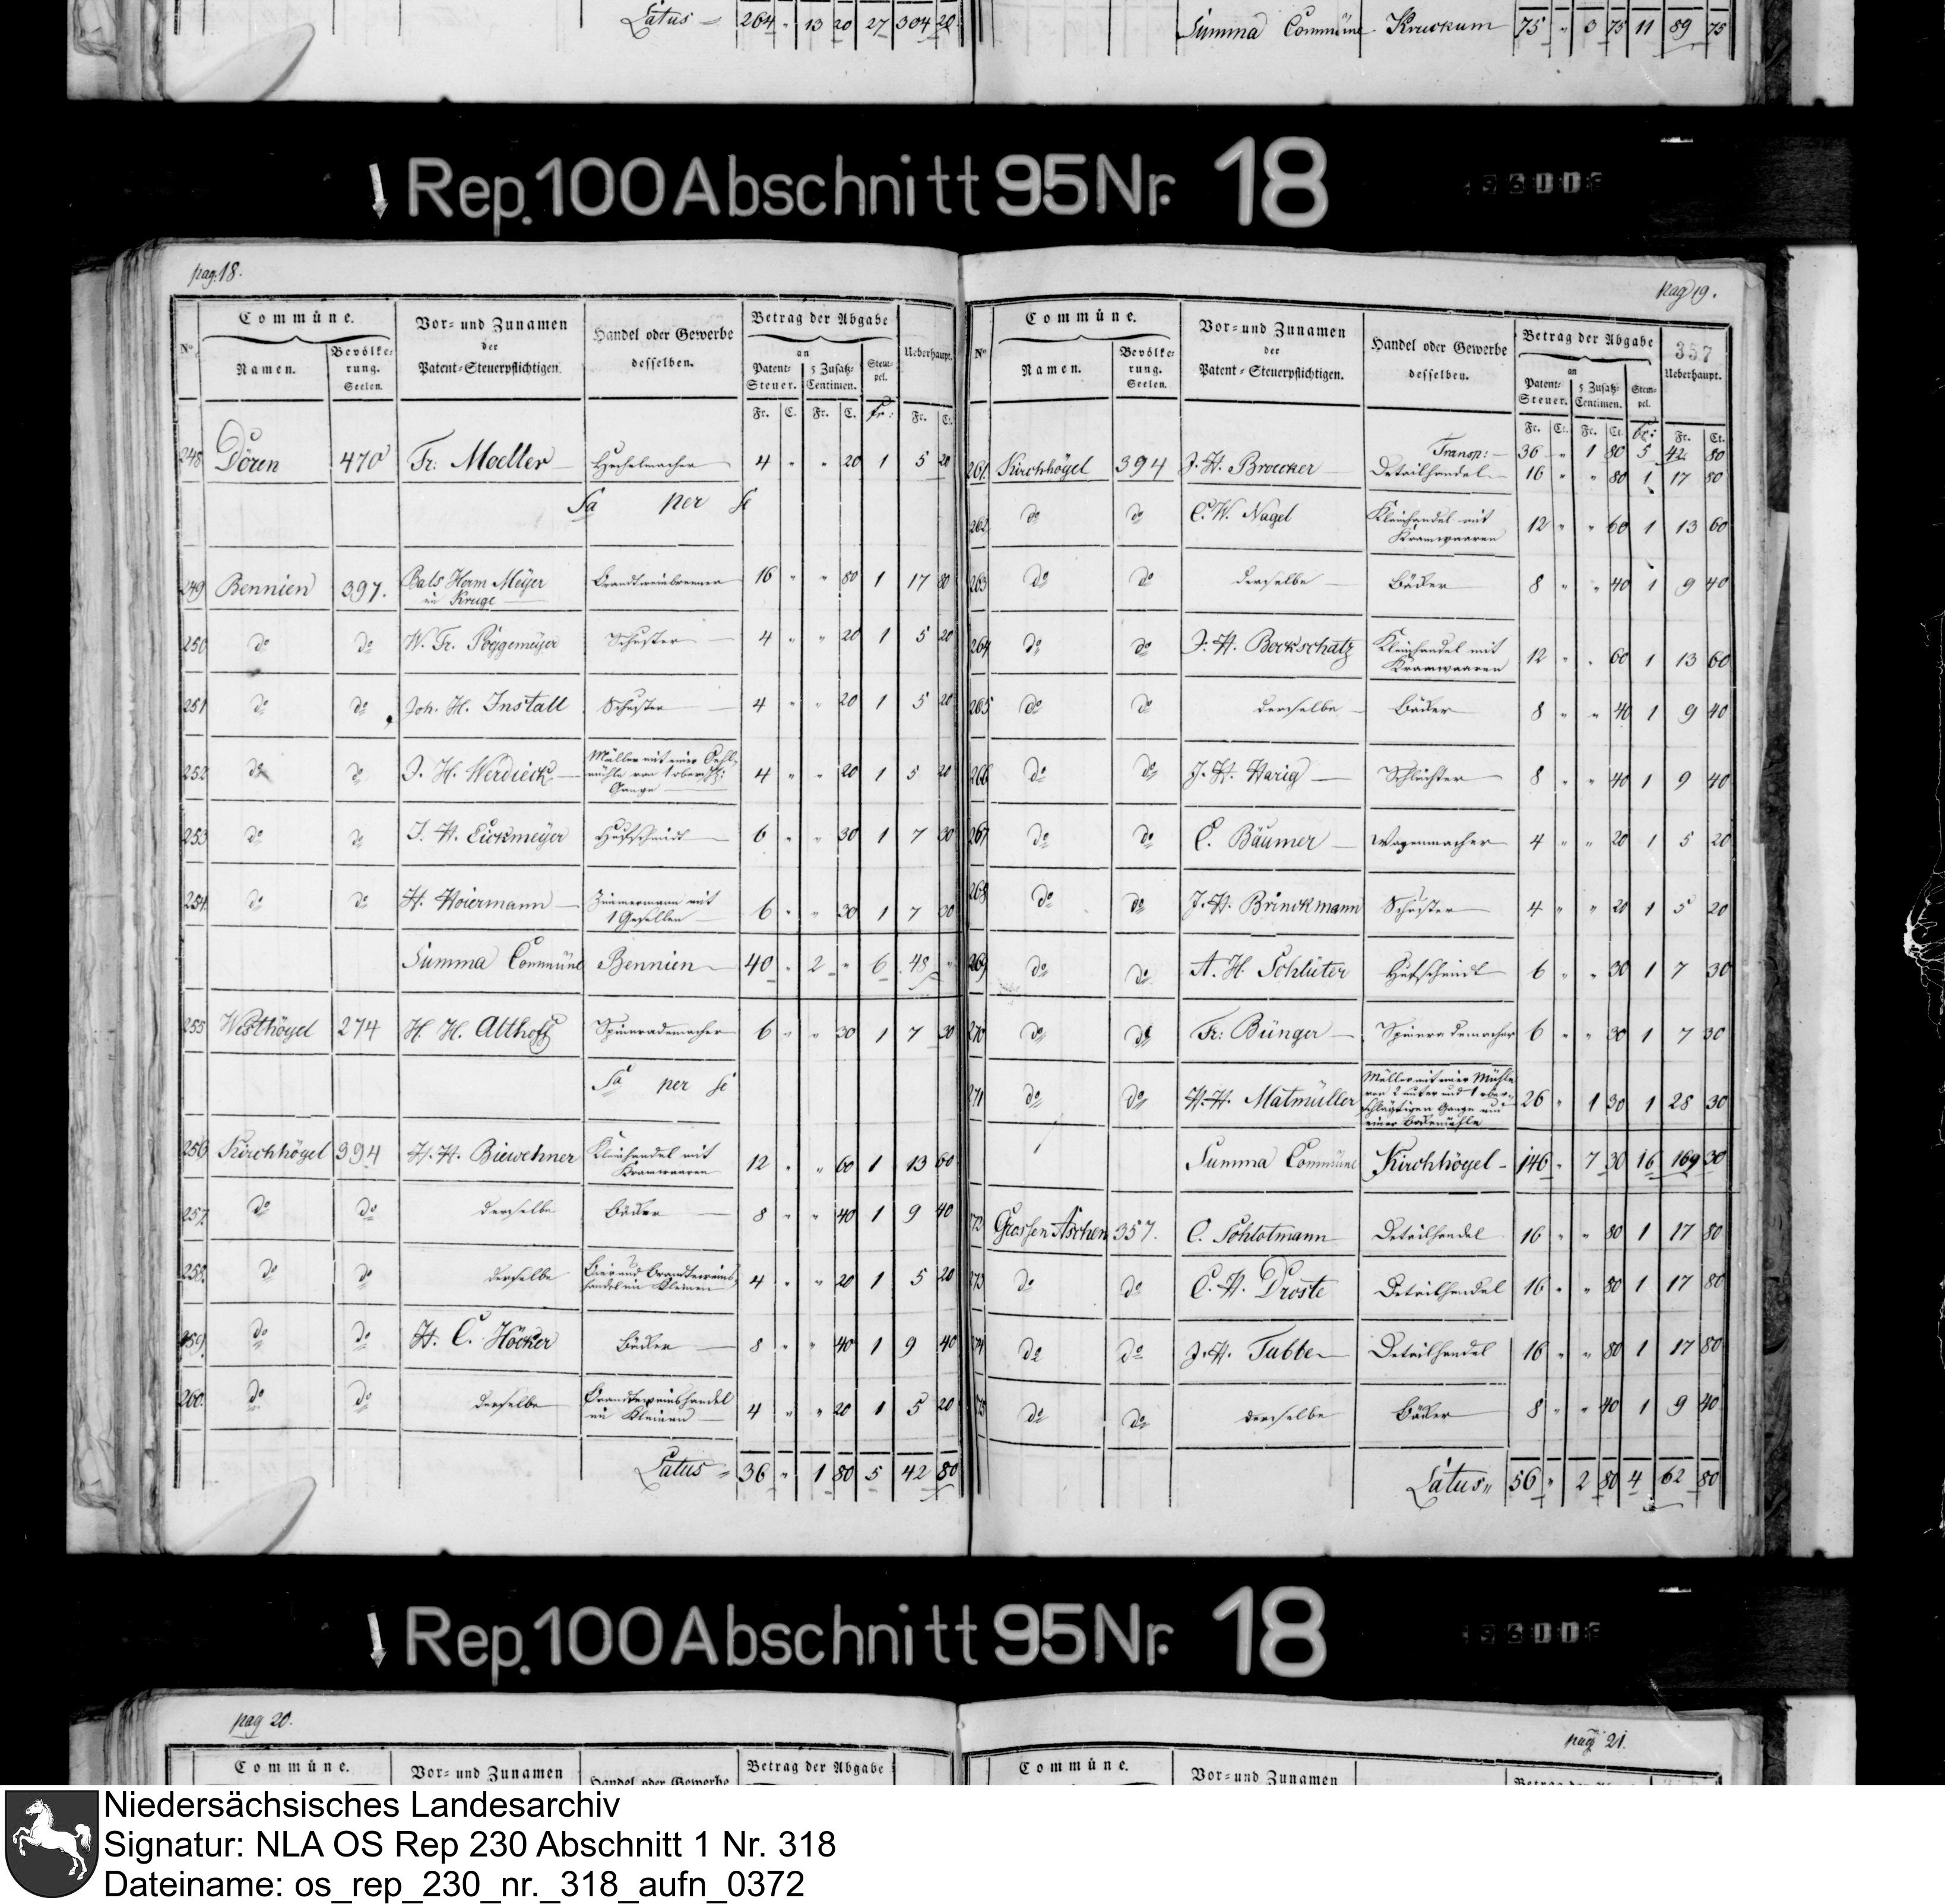 Latus = 264 " 13 20 27 304 20
Summa Commüne Kruckum 75 " 3 75 11 89 75
Rep. 100 Abschnitt 95 Nr. 18
pag. 18.
Commüne.
Vor- und Zunamen
der
Patent-Steuerpflichtigen.
Handel oder Gewerbe
desselben.
Betrag der Abgabe
an
Ueberhaupt.
No.
Namen.
Bevölke-
rung.
Seelen.
Patent-
Steuer.
5 Zusatz-
Centimen.
Stem-
pel.
Fr. C. Fr. C. Fr: Fr. C.
248 Dören 470 Fr. Moeller Hechelmacher 4 " " 20 1 5 20
Sa per se
249 Bennien 397. Bals Herm Meÿer Brandtweinbrenner 16 " " 80 1 17 80
im Kruge
250 do do W. Fr. Pöggemeÿer Schuster 4 " " 20 1 5 20
251 do do Joh. H. Install Schuster 4 " " 20 1 5 20
252 do do J. H. Werdieck Müller mit einer Oehl-
mühle von 1 obersch: 4 " " 20 1 5 20
Gange
253 do do J. H. Eickmeÿer Hufschmidt 6 " " 30 1 7 30
254 do do H. Hoiermann Zimmermann mit
1 Gesellen 6 " " 30 1 7 30
Summa Commüne Bennien 40 " 2 " 6 48 "
255 Westhöyel 274 H. H. Althoff Spinnrademacher 6 " " 30 1 7 30
Sa per se
256 Kirchhöyel 394 H. H. Biewehner Kleinhandel mit
Kramwaaren 12 " " 60 1 13 60
257 do do derselbe Bäcker 8 " " 40 1 9 40
258. do do derselbe Bier und Brandtweins-
handel im Kleinen 4 " " 20 1 5 20
259. do do H. C. Höcker Bäcker 8 " " 40 1 9 40
260. do do derselbe Brandtweinshandel
im Kleinen 4 " " 20 1 5 20
Latus = 36 " 1 80 5 42 80
pag 19.
357
Commüne.
Vor- und Zunamen
der
Patent-Steuerpflichtigen.
Handel oder Gewerbe
desselben.
Betrag der Abgabe
an
Ueberhaupt.
No
Namen.
Bevölke-
rung.
Seelen.
Patent-
Steuer.
5 Zusatz-
Centimen.
Stem-
pel.
Fr. Ct. Fr. Ct. fr: Fr. Ct.
Transp: 36 " 1 80 5 42 80
261. Kirchhöyel 394 J. H. Broecker Detailhandel 16 " " 80 1 17 80
262 do do C. W. Nagel Kleinhandel mit
Kramwaaren 12 " " 60 1 13 60
263 do do derselbe Bäcker 8 " " 40 1 9 40
264 do do J. H. Bockschatz Kleinhandel mit
Kramwaaren 12 " " 60 1 13 60
265 do do derselbe Bäcker 8 " " 40 1 9 40
266 do do J. H. Harig Schlächter 8 " " 40 1 9 40
267 do do C. Bäumer Wagenmacher 4 " " 20 1 5 20
268 do do J. H. Brinckmann Schuster 4 " " 20 1 5 20
269 do do A. H. Schlüter Hufschmidt 6 " " 30 1 7 30
270 do do Fr: Bünger Spinnrademacher 6 " " 30 1 7 30
271 do do H. H. Matmüller Müller mit einer Mühle
von 2 unter und 1 ober-
schlägtigen Gange und 26 " 1 30 1 28 30
einer Bockemühle
Summa Commüne Kirchhöyel - 146 " 7 30 16 169 30
272 Grossen Aschen 357. C. Schlotmann Detailhandel 16 " " 80 1 17 80
273 do do C. H. Droste Detailhandel 16 " " 80 1 17 80
274 do do J. H. Tubbe Detailhandel 16 " " 80 1 17 80
275 do do derselbe Bäcker 8 " " 40 1 9 40
Latus " 56 " 2 80 4 62 80
Rep. 100 Abschnitt 95 Nr. 18
pag 20.
pag 21.
Commüne.
Vor- und Zunamen
Handel oder Gewerbe
Betrag der Abgabe
Commüne.
Vor- und Zunamen
Niedersächsisches Landesarchiv
Signatur: NLA OS Rep 230 Abschnitt 1 Nr. 318
Dateiname: os_rep_230_nr._318_aufn_0372